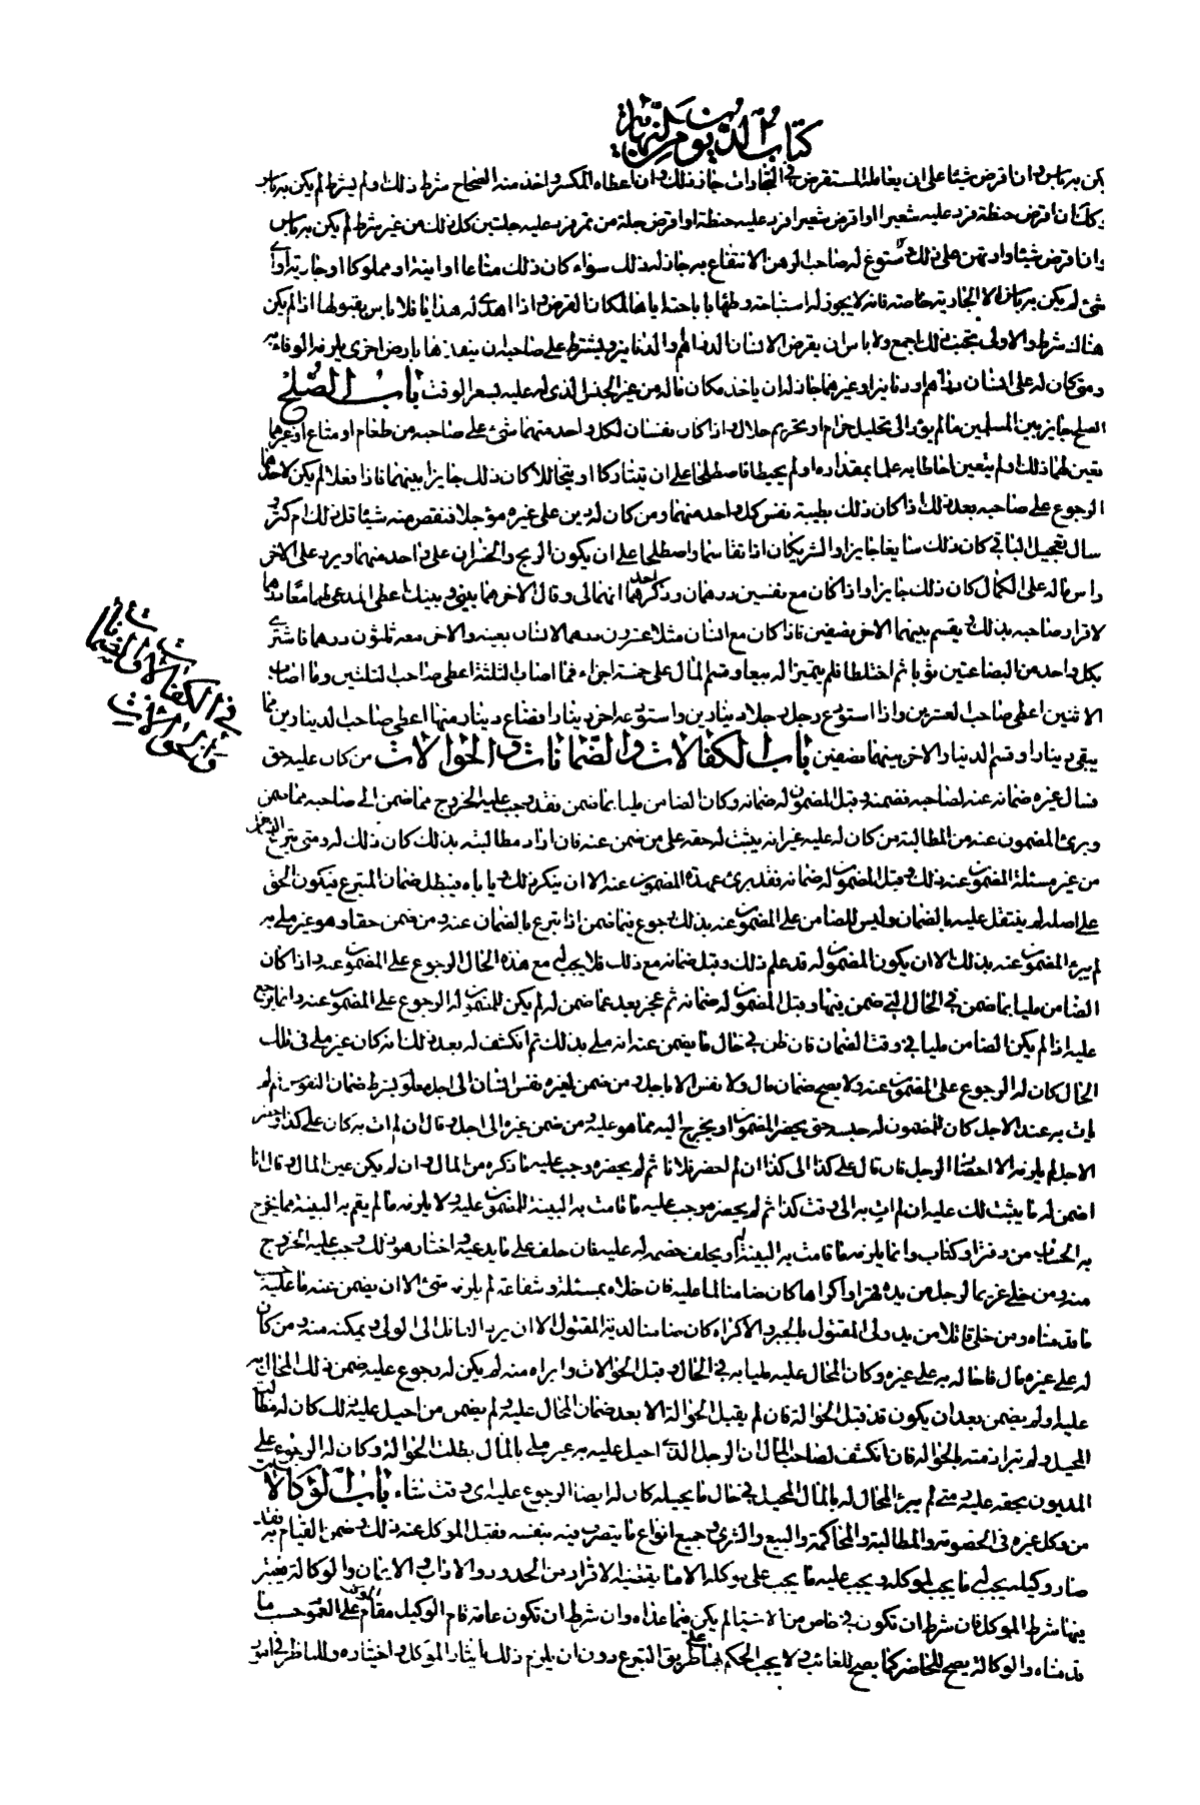 كتاب الديون من النهاية
يكن به باس وان اقرض شيئا على ان يعامله المستقرض في التجارات جاز ذلك وان اعطاه المكسر واخذ منه الصحاح شرط ذلك او لم يشرط لم يكن به باس
وكذلك ان اقرض حنطة فرد عليه شعيرا او اقرض شعيرا فرد عليه حنطة او اقرض جلة من تمر فرد عليه جلتين كل ذلك من غير شرط لم يكن به باس
وان اقرض شيئا وارتهن على ذلك وسوغ له صاحب الرهن الانتفاع به جاز له ذلك سواء كان ذلك متاعا او انية او مملوكا او جارية او اي
شئ لم يكن به باس الا الجارية خاصة فانه لا يجوز له استباحة وطيها باباحته اياها لمكان القرض واذا اهدى له هدايا فلا باس بقبولها اذا لم يكن
هناك شرط والاولى تجنب ذلك اجمع ولا باس ان يقرض الانسان الدراهم والدنانير ويشترط على صاحبه ان ينقدها بارض اخرى يلزمه الوفاء به
ومتى كان له على انسان دراهم او دنانير او غيرهما جاز له ان ياخذ مكان ماله من غير الجنس الذي له عليه بسعر الوقت باب الصلح
الصلح جايز بين المسلمين مالم يؤد الى تحليل حرام او تحريم حلال واذا كان نفسان لكل واحد منهما شئ على صاحبه من طعام او متاع او غيرهما
تعين لهما ذلك او لم يتعين احاطا به علما بمقداره او لم يحيطا فاصطلحا على ان يتتاركا او يتحاللا كان ذلك جايزا بينهما فاذا فعلا لم يكن لاحدهما
الرجوع على صاحبه بعد ذلك اذا كان ذلك بطيبة نفس كل واحد منهما ومن كان له دين على غيره مؤجلا فنقص منه شيئا قل ذلك ام كثر و
سال تعجيل الباقي كان ذلك سايغا جايزا والشريكان اذا تقاسما واصطلحا على ان يكون الربح والخسران على واحد منهما ويرد على الاخر
راس ماله على الكمال كان ذلك جايزا واذا كان مع نفسين درهمان وذكر احدهما انهما لي وقال الاخر هما بيني وبينك اعطي المدعي لهما معا درهما
لاقرار صاحبه بذلك ويقسم بينهما الاخر نصفين فاذا كان مع انسان مثلا عشرون درهما لانسان بعينه والاخر معه ثلثون درهما فاشترى
بكل واحد من البضاعتين ثوبا ثم اختلطا فلم يتميزا له بيعا وقسم المال على خمسة اجزاء فما اصاب الثلثة اعطى صاحب الثلثين وما اصاب
الاثنين اعطى صاحب العشرين واذا استودع رجل رجلا دينارين واستودعه اخر دينارا فضاع دينار منها اعطي صاحب الدينارين مما
يبقى دينارا وقسم الدينار الاخر بينهما نصفين باب الكفالات والضمانات والحوالات من كان عليه حق
فسال غيره ضمانه عنه لصاحبه فضمنه وقبل المضمون له ضمانه وكان الضامن مليا بما ضمن فقد وجب عليه الخروج مما ضمن الى صاحبه مما ضمن
وبرئ المضمون عنه من المطالبة من كان له عليه غير انه يثبت له حقه على من ضمن عنه فان اراد مطالبته بذلك كان ذلك له ومتى تبرع الرجل
من غير مسئلة المضمون عنه ذلك وقبل المضمون له ضمانه فقد برئ عهدة المضمون عنه الا ان ينكر ذلك وياباه فيبطل ضمان المتبرع فيكون الحق
على اصله لم ينتقل عليه بالضمان وليس للضامن على المضمون عنه بذلك رجوع فيما ضمن اذا تبرع بالضمان عنه ومن ضمن حقا وهو غير ملي به
لم يبرء المضمون عنه بذلك الا ان يكون المضمون له قد علم ذلك وقبل ضمانه مع ذلك فلا يجب له مع هذه الحال الرجوع على المضمون عنه واذا كان
الضامن مليا بما ضمن في الحال التي ضمن فيها وقبل المضمون له ضمانه ثم عجز بعد عما ضمن له لم يكن للمضمون له الرجوع على المضمون عنه وانما يرجع
عليه اذا لم يكن الضامن مليا في وقت الضمان فان ظن في حال ما يضمن عنه انه ملي بذلك ثم انكشف له بعد ذلك انه كان غير ملي في تلك
الحال كان له الرجوع على المضمون عنه ولا يصح ضمان مال ولا نفس الا باجل ومن ضمن لغيره نفس انسان الى اجل معلوم بشرط ضمان النفس ثم لم
يات به عند الاجل كان للمضمون له حبسه حتى يحضر المضمون او يخرج اليه مما هو عليه ومن ضمن غيره الى اجل وقال ان لم ات به كان على كذا وحضر
الاجل لم يلزمه الا احضار الرجل فان قال على كذا الى كذا ان لم احضر فلانا ثم لم يحضره وجب عليه ما ذكره من المال وان لم يكن عين المال وقال انا
اضمن له ما يثبت لك عليه ان لم ات به الى وقت كذا ثم لم يحضره وجب عليه ما قامت به البينة للمضمون عليه ولا يلزمه ما لم يقم به البينة مما يخرج
به الحساب من دفتر او كتاب وانما يلزمه ما قامت به البينة او يحلف خصمه له عليه فان حلف على ما يدعيه واختار هو ذلك وجب عليه الخروج
منه ومن خلى غريما لرجل من يده قهرا او اكراها كان ضامنا لما عليه فان خلاه بمسئلة وشفاعة لم يلزمه شئ الا ان يضمن عنه ما عليه حسب
ما قدمناه ومن خلى قاتلا من يد ولي المقتول بالجبر والاكراه كان ضامنا لدية المقتول الا ان يرد القاتل الى الولي ويمكنه منه ومن كان
له على غيره مال فاحال به على غيره وكان المحال عليه مليا به في الحال وقبل الحوالات وابراه منه لم يكن له رجوع عليه ضمن ذلك المحال به
عليه او لم يضمن بعد ان يكون قد قبل الحوالة فان لم يقبل الحوالة الا بعد ضمان المحال عليه ولم يضمن من احيل عليه ذلك كان له مطالبة
المحيل ولم تبرا ذمته بالحوالة فان انكشف لصاحب المال ان الرجل الذي احيل عليه به غير ملي بالمال بطلت الحوالة وكان له الرجوع على
المديون بحقه عليه ومتى لم يبرئ المحال له بالمال المحيل في حال ما يحيله كان له ايضا الرجوع عليه اي وقت شاء باب الوكالات
من وكل غيره في الخصومة والمطالبة والمحاكمة والبيع والشرى وجميع انواع ما يتصرف فيه بنفسه فقبل الموكل عنه ذلك وضمن القيام به فقد
صار وكيله يجب له ما يجب لموكله ويجب عليه ما يجب على موكله الا ما يقتضيه الاقرار من الحدود والاداب والايمان والوكالة يعتبر
فيها شرط الموكل فان شرط ان تكون في خاص من الاشياء لم يكن فيما عداه وان شرط ان تكون عامة قام الوكيل مقام الموكل على العموم حسب ما
قدمناه والوكالة يصح للحاضر كما يصح للغائب ولا يجب الحكم بها على طريق التبرع دون ان يلزم ذلك بايثار الموكل واختياره وللناظر في امور
في الكفالات والضمانات
والحوالات